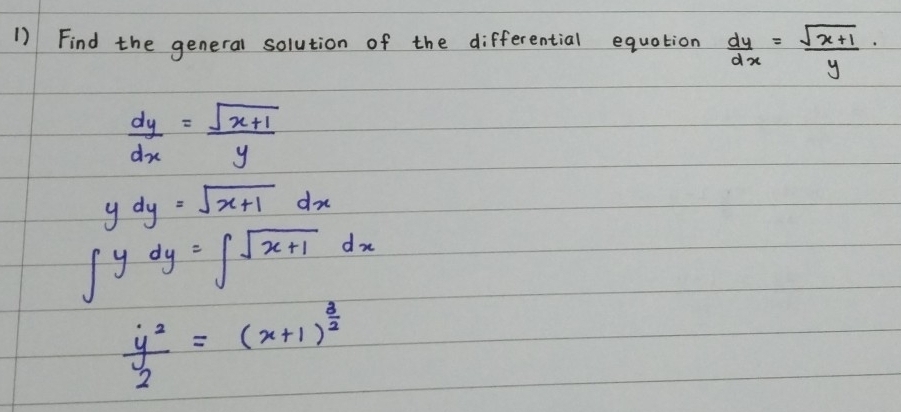 1) Find the general solution of the differential equation dy/dx = √(x+1)/y.
dy/dx = √(x+1)/y
y dy = √(x+1) dx
∫ y dy = ∫ √(x+1) dx
y²/2 = (x+1)^(3/2)